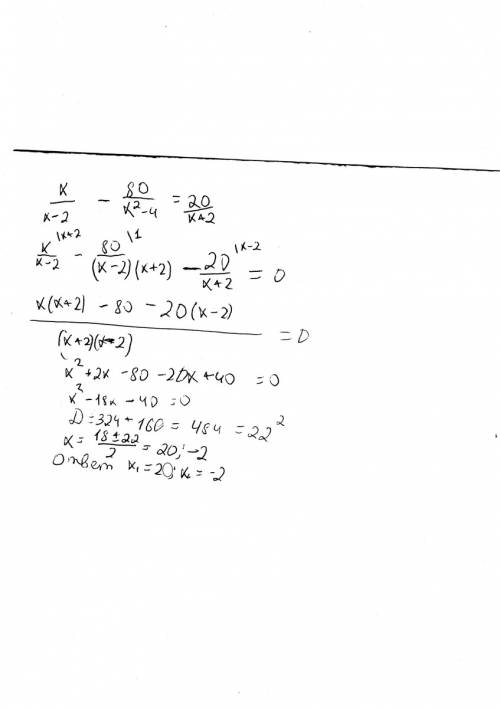 x/(x-2) - 80/(x²-4) = 20/(x+2)
x/(x-2) \x+2 - 80/((x-2)(x+2)) \1 - 20/(x+2) \x-2 = 0
(x(x+2) - 80 - 20(x-2))/((x+2)(x-2)) = 0
x²+2x - 80 - 20x + 40 = 0
x² - 18x - 40 = 0
D = 324 + 160 = 484 = 22²
x = (18±22)/2 = 20; -2
Ответ x₁ = 20; x₂ = -2